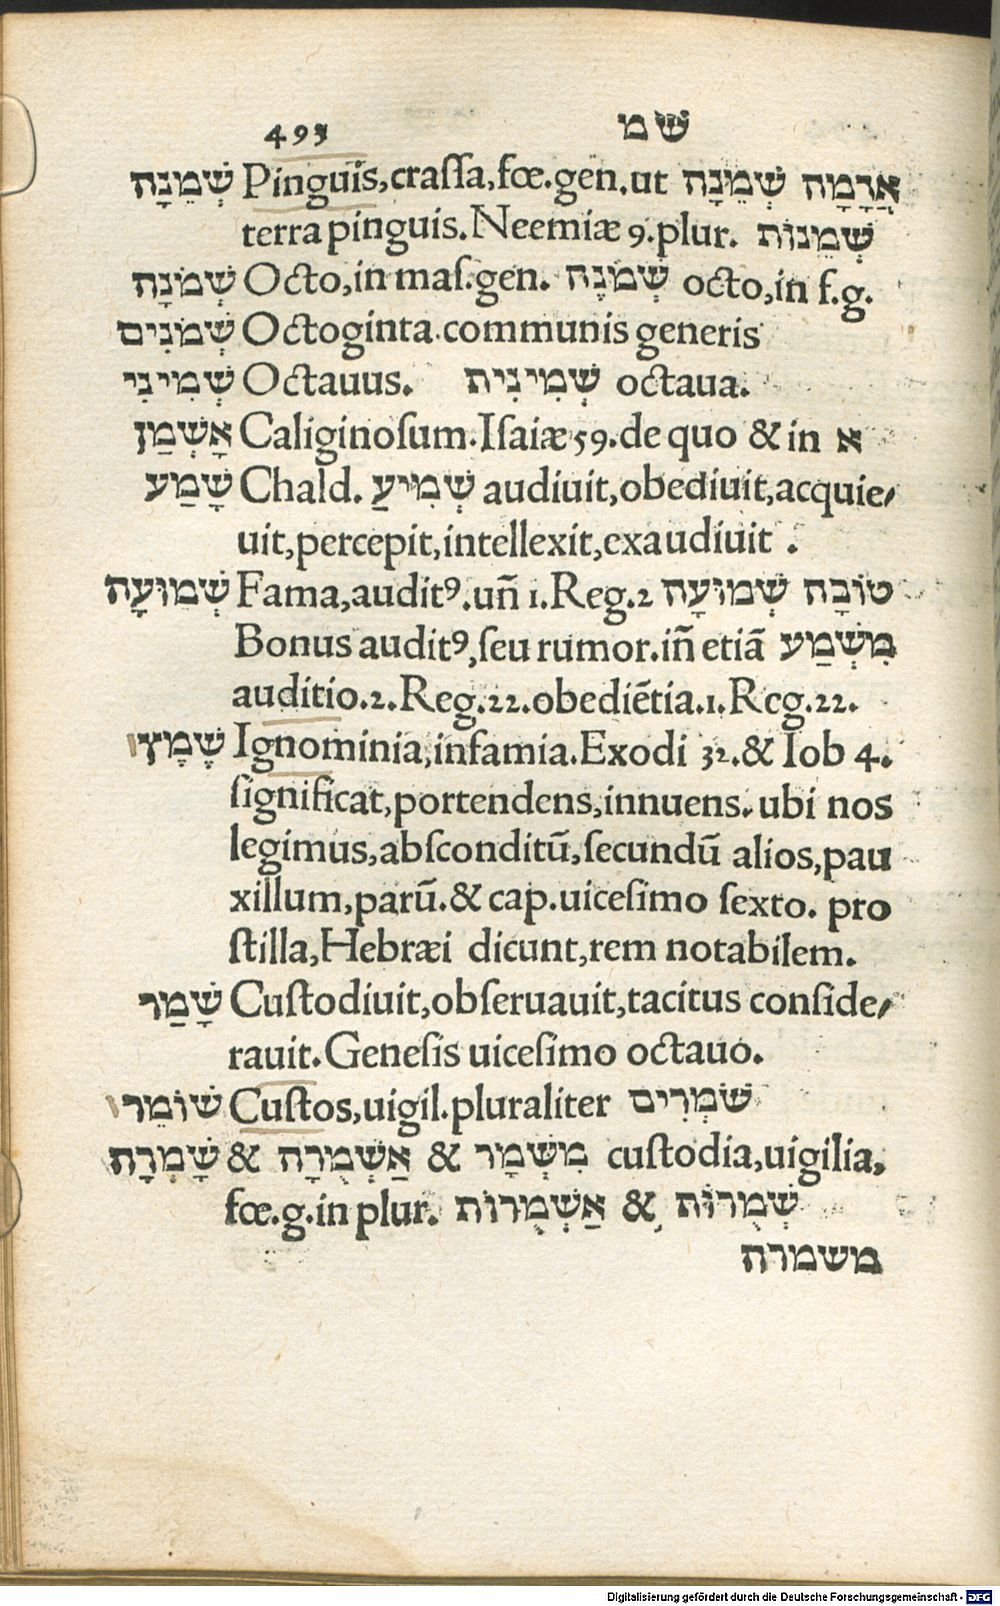 495 שמ
שְׁמֵנָה Pinguis,craſſa,fœ.gen.ut אֲדָמָה שְׁמֵנָה
terra pinguis.Neemiæ 9.plur. שְׁמֵנוֹת
שְׁמֹנָה Octo,in maſ.gen. שְׁמֹנֶה octo,in f.g.
שְׁמֹנִים Octoginta.communis generis
שְׁמִינִי Octauus. שְׁמִינִית octaua.
אָשְׁמַן Caliginoſum.Iſaiæ 59.de quo & in א
שָׁמַע Chald. שְׁמִיעַ audiuit,obediuit,acquie⸗
uit,percepit,intellexit,exaudiuit .
שְׁמוּעָה Fama,auditꝰ.uñ 1.Reg.2 טוֹבָה שְׁמוּעָה
Bonus auditꝰ,ſeu rumor.iñ etiã מִשְׁמַע
auditio.2.Reg.22.obediẽtia.1.Reg.22.
שֶׁמֶץ Ignominia,infamia.Exodi 32.& Iob 4.
ſignificat,portendens,innuens.ubi nos
legimus,abſconditũ,ſecundũ alios,pau
xillum,parũ.& cap.uiceſimo ſexto. pro
ſtilla,Hebræi dicunt,rem notabilem.
שָׁמַר Cuſtodiuit,obſeruauit,tacitus conſide⸗
rauit.Geneſis uiceſimo octauo.
שׁוֹמֵר Cuſtos,uigil.pluraliter שֹׁמְרִים
שָׁמְרָה & אַשְׁמֻרָה & מִשְׁמָר cuſtodia,uigilia,
fœ.g.in plur. אַשְׁמֻרוֹת & שְׁמֻרוֹת
משמרה
Digitalisierung gefördert durch die Deutsche Forschungsgemeinschaft - DFG